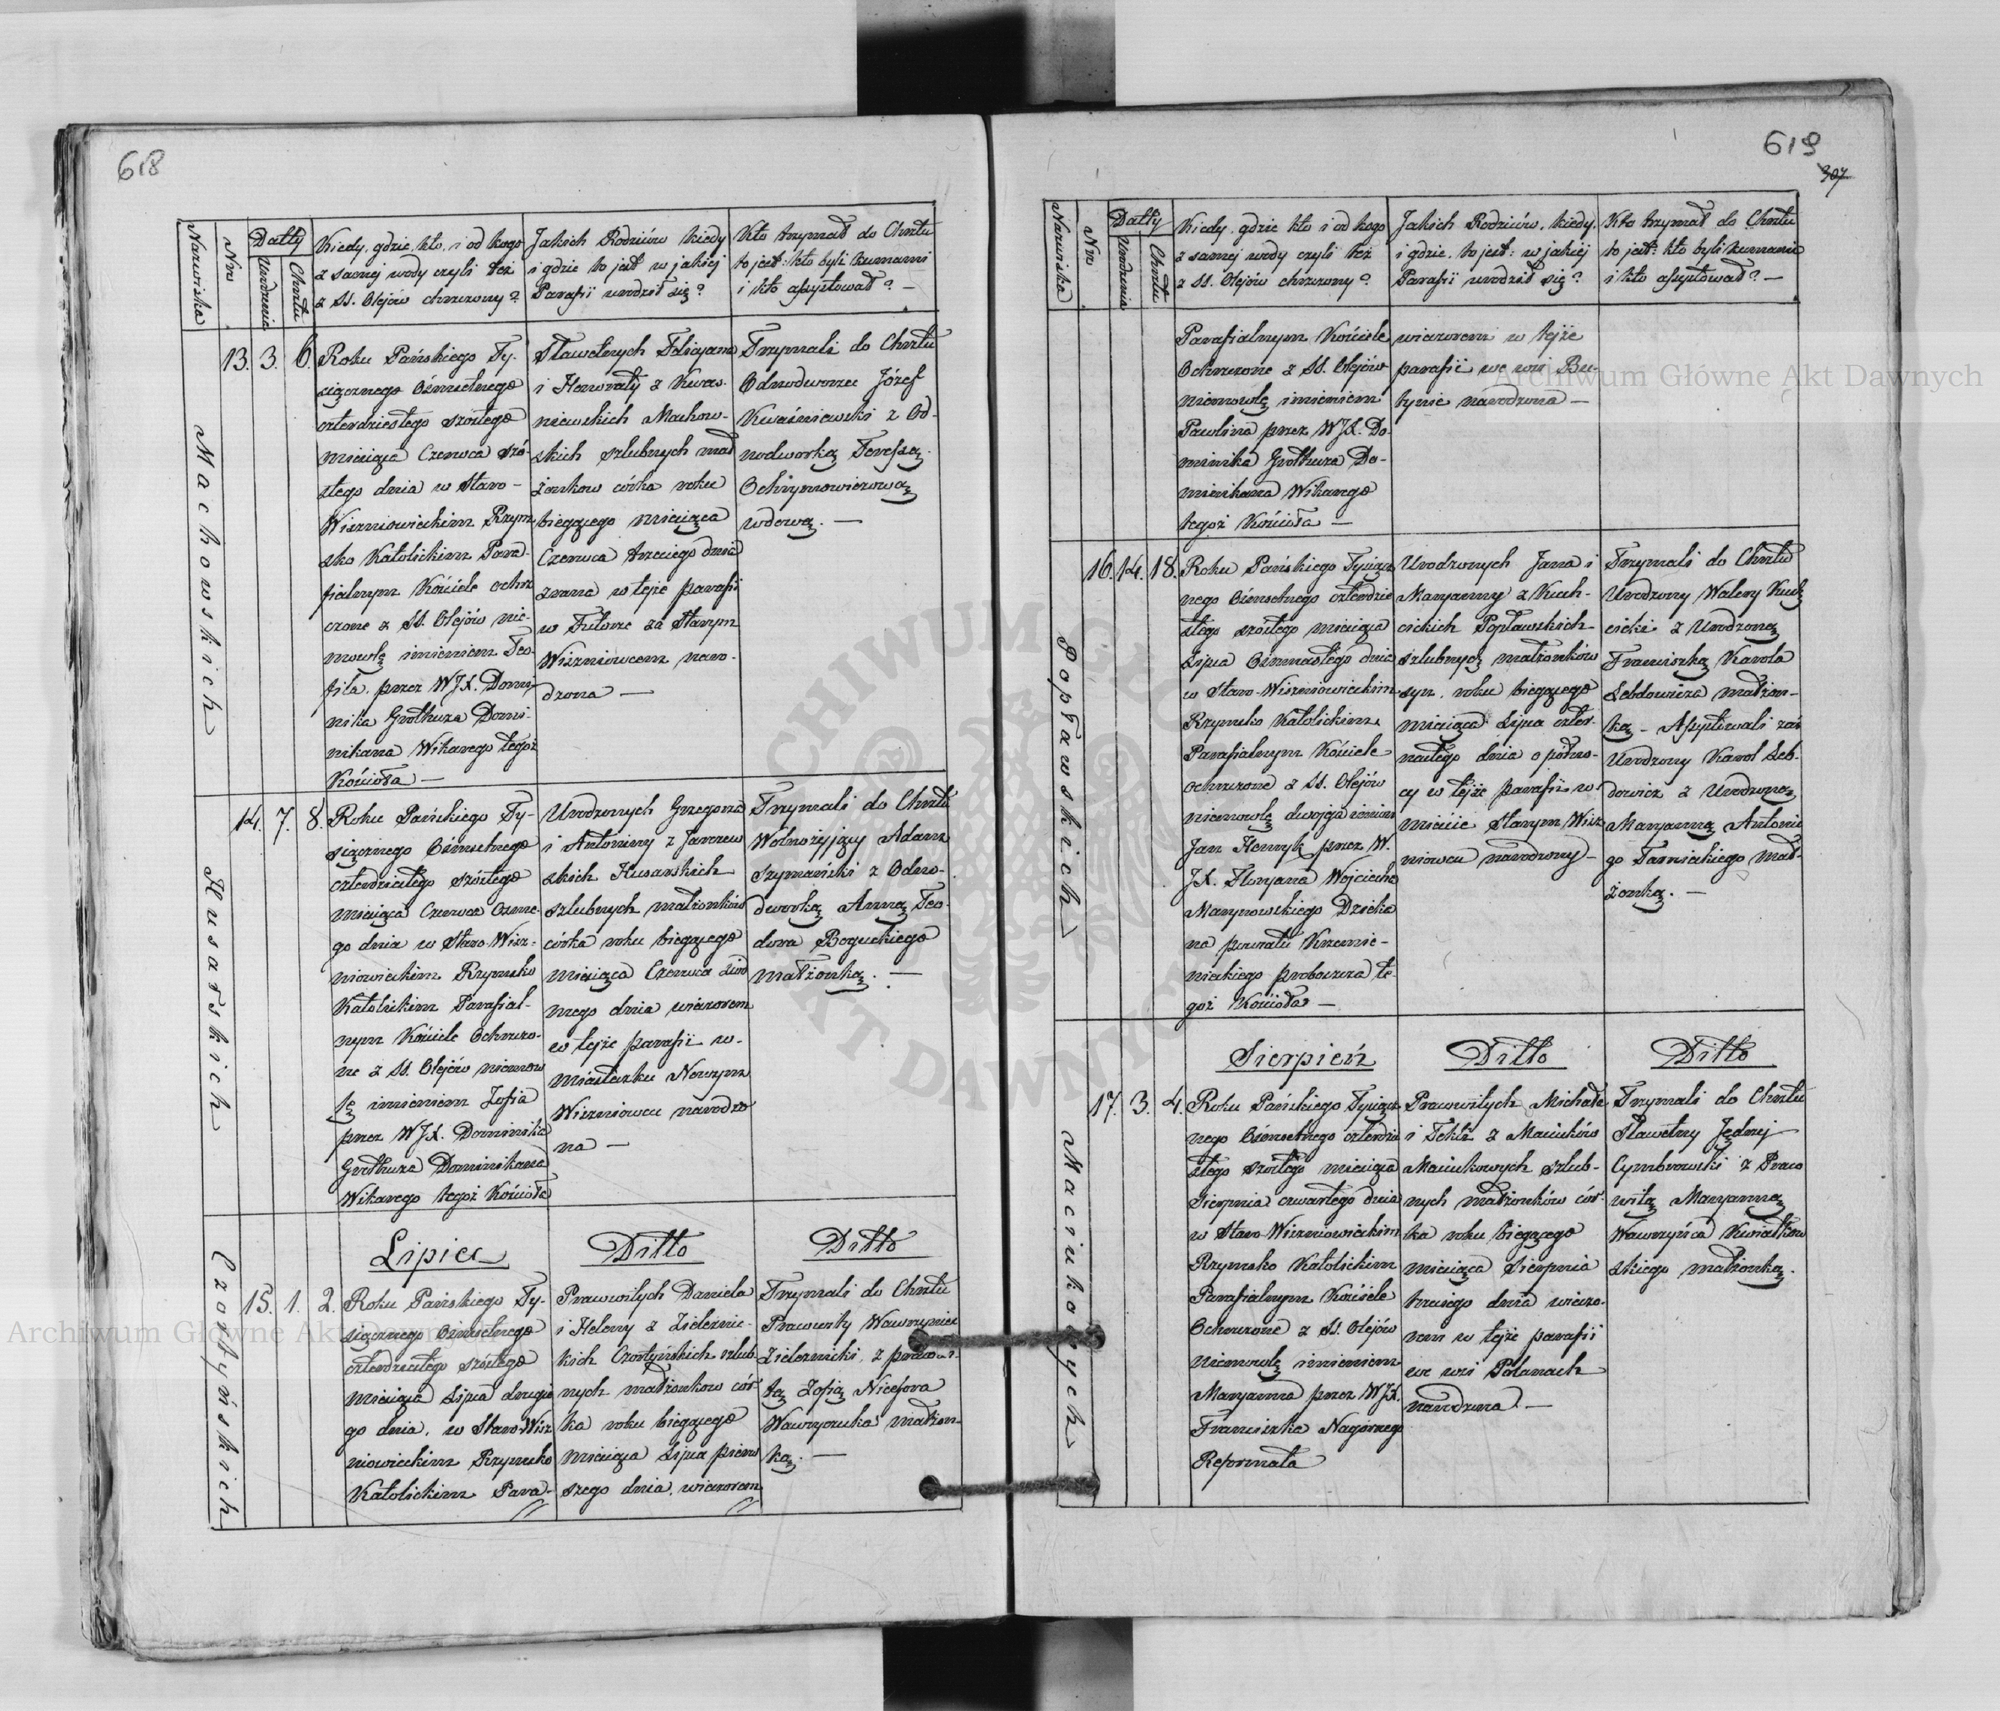 618
Nazwiska
Nro
Datty
Urodzenia
Chrztu
Kiedy, gdzie, kto, i od kogo
z samej wody czyli też
z SS. Olejów chrzczony?
Jakich Rodziców kiedy
i gdzie to jest w jakiej
Parafii urodził się?
Kto trzymał do Chrztu
to jest: kto byli kumami
i kto assystował? —
Machowskich
13. 3. 6.
Roku Pańskiego Ty-
siącznego Ośmsetnego
czterdziestego szóstego
miesiąca Czerwca szó-
stego dnia w Staro-
Wiszniowieckim Rzym
sko Katolickim Para-
fialnym Kościele ochrz
czone z SS. Olejów nie-
mowlę imieniem Teo-
fila, przez WJX. Domi-
nika Grothuza Domi-
nikana Wikarego tegoż
Kościoła —
Sławetnych Felicyana
i Honoraty z Kwas-
niewskich Machow-
skich szlubnych mał
żonkow córka roku
biegącego miesiąca
Czerwca trzeciego dnia
zrana w tejże parafii
w Futorze za Starym
Wiszniowcem naro-
dzona —
Trzymali do Chrztu
Odnodworzec Józef
Kwaśniewski z Od-
nodworką Teressą
Ochrymowiczową
wdową. —
Husarskich
14. 7. 8.
Roku Pańskiego Ty-
siącznego Ośmsetnego
czterdziestego szóstego
miesiąca Czerwca Osme-
go dnia w Staro Wisz-
niowieckim Rzymsko
Katolickim Parafial-
nym Kościele Ochrzczo-
ne z SS. Olejów niemow
lę imieniem Zofia
przez WJX. Dominika
Grothuza Dominikana
Wikarego tegoż Kościoła
Urodzonych Grzegorza
i Antoniny z Jaworew
skich Husarskich
szlubnych małżonków
córka roku biegącego
miesiąca Czerwca siód
mego dnia wieczorem
w tejże parafii w-
miasteczku Nowym
Wiszniowcu narodzo
na —
Trzymali do Chrztu
Wolnożyjący Adam
Szymański z Odno-
dworką Anną Teo-
dora Boguckiego
małżonką. —
Czostyńskich
Lipiec
Ditto
Ditto
15. 1. 2.
Roku Pańskiego Ty-
siącznego Ośmsetnego
czterdziestego szóstego
miesiąca Lipca drugie
go dnia, w Staro-Wisz
niowieckim Rzymsko
Katolickim Para-
Prawowitych Daniela
i Heleny z Zieleznic-
kich Czostyńskich szlub-
nych małżonkow cór-
ka roku biegącego
miesiąca Lipca pierw
szego dnia, wieczorem
Trzymali do Chrztu
Prawowity Wawrzyniec
Zieleznicki, z prawowi-
tą Zofią Nicefora
Wawryczuka małżon-
ką. —
619
307
Nazwiska
Nro
Datty
Urodzenia
Chrztu
Kiedy, gdzie kto i od kogo
z samej wody czyli też
z SS. Olejów chrzczony?
Jakich Rodziców, kiedy
i gdzie, to jest: w jakiej
Parafii urodził się?
Kto trzymał do Chrztu
to jest: kto byli kumami
i kto assystował? —
Parafialnym Kościele
Ochrzczone z SS. Olejów
niemowlę imieniem
Pawlina przez WJX. Do-
minika Grothuza Do-
minikana Wikarego
tegoż Kościoła —
wieczorem w tejże
parafii we wsi Bu-
tynie narodzona —
Popławskich
16. 14. 18.
Roku Pańskiego Tysiącz
nego Ośmsetnego czterdzie
stego szóstego miesiąca
Lipca Osmnastego dnia
w Staro-Wiszniowieckim
Rzymsko Katolickim
Parafialnym Kościele
ochrzczone z SS. Olejów
niemowlę dwojga imion
Jan Henryk przez W.
JX. Floryana Wojciecha
Marynowskiego Dzieka
na powiatu Krzemie-
nieckiego proboszcza te-
goż Kościoła —
Urodzonych Jana i
Maryanny z Kuch-
cickich Popławskich
szlubnych małżonków
syn, roku biegącego
miesiąca Lipca czter-
nastego dnia o półno-
cy w tejże parafii w
mieście Starym Wisz
niowcu narodzony —
Trzymali do Chrztu
Urodzony Walery Kuch
cicki z Urodzoną
Franciszką Karola
Lebdowicza małżon-
ką — Assystowali zaś
Urodzony Karol Leb-
dowicz z Urodzoną
Maryanną Antonie
go Tarnickiego mał-
żonką. —
Maciukowych
Sierpień
Ditto
Ditto
17. 3. 4.
Roku Pańskiego Tysiącz
nego Ośmsetnego czterdzie
stego szóstego miesiąca
Sierpnia czwartego dnia
w Staro Wiszniowieckim
Rzymsko Katolickim
Parafialnym Kościele
Ochrzczone z SS. Olejów
niemowlę imieniem
Maryanna przez WJX.
Franciszka Nagórnego
Reformata
Prawowitych Michała
i Tekli z Maciuków
Maciukowych szlub-
nych małżonków cór-
ka roku biegącego
miesiąca Sierpnia
trzeciego dnia wieczo-
rem w tejże parafii
we wsi Polanach
narodzona. —
Trzymali do Chrztu
Sławetny Jędrzej
Cymbrowski z Prawo
witą Maryanną
Wawrzyńca Kwiatkow
skiego małżonką.
Archiwum Główne Akt Dawnych
Archiwum Główne Akt Dawnych